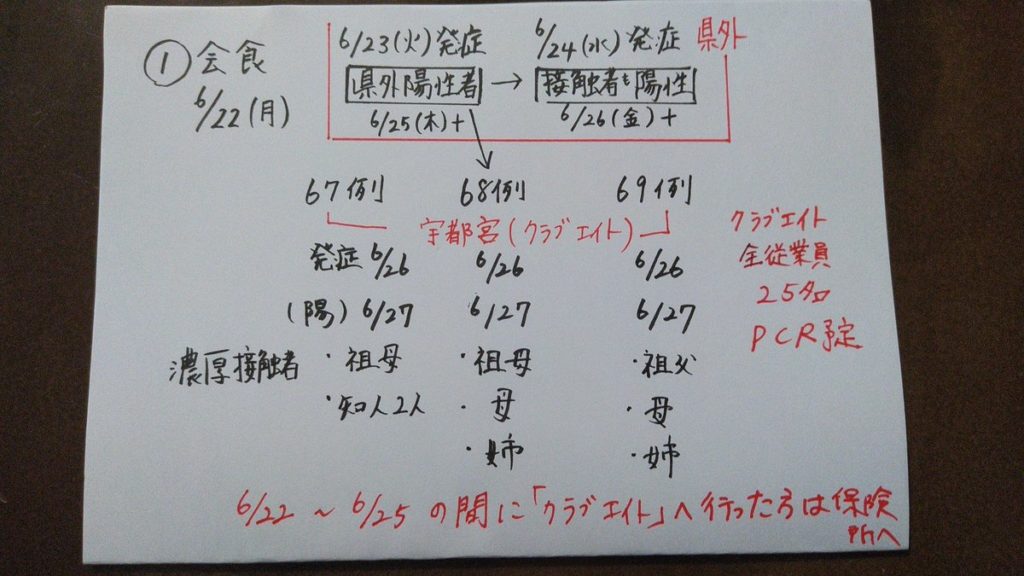 ① 会食
6/22(月)
6/23(火)発症
県外陽性者
6/25(木)+
→
6/24(水)発症
接触者も陽性
6/26(金)+
県外
67例 68例 69例
宇都宮(クラブエイト)
発症 6/26 6/26 6/26
(陽) 6/27 6/27 6/27
濃厚接触者
・祖母 ・祖母 ・祖父
・知人2人 ・母 ・母
・姉 ・姉
クラブエイト
全従業員
25名
PCR予定
6/22~6/25の間に「クラブエイト」へ行った方は保険
所へ